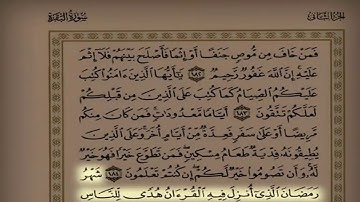 الجزء الثاني
سورة البقرة
فمن خاف من موص جنفا أو إثما فأصلح بينهم فلا إثم
عليه إن الله غفور رحيم ١٨٢ يأيها الذين ءامنوا كتب
عليكم الصيام كما كتب على الذين من قبلكم
لعلكم تتقون ١٨٣ أياما معدودات فمن كان منكم
مريضا أو على سفر فعدة من أيام أخر وعلى الذين
يطيقونه فدية طعام مسكين فمن تطوع خيرا فهو خير
له وأن تصوموا خير لكم إن كنتم تعلمون ١٨٤ شهر
رمضان الذي أنزل فيه القرءان هدى للناس